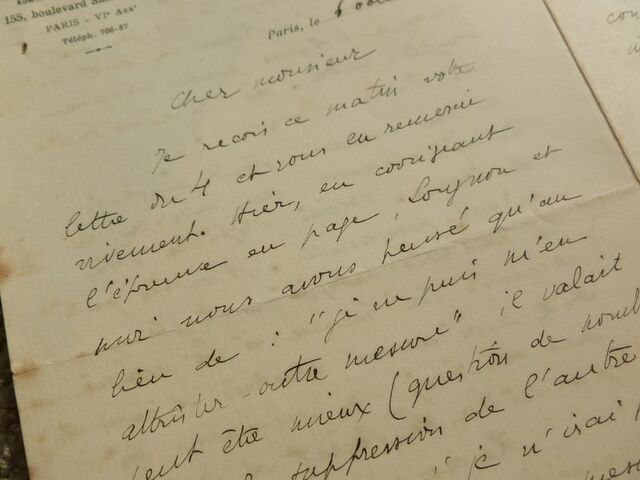 155, boulevard Sa
PARIS - VIe Arrt
Téléph. 706-87
Paris, le 6
Cher monsieur
Je reçois ce matin votre
lettre du 4 et vous en remercie
vivement. Hier, en corrigeant
l'épreuve en page, Lougnon et
moi nous avons pensé qu'au
lieu de : "je ne puis m'en
attrister outre mesure" il valait
peut être mieux (question de nomb
suppression de l'autre
"je n'irai p
mesu
con